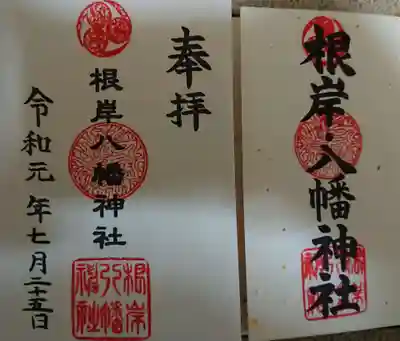 根岸・八幡神社
奉拝
根岸八幡神社
令和元年七月二十五日
根岸
八幡
神社